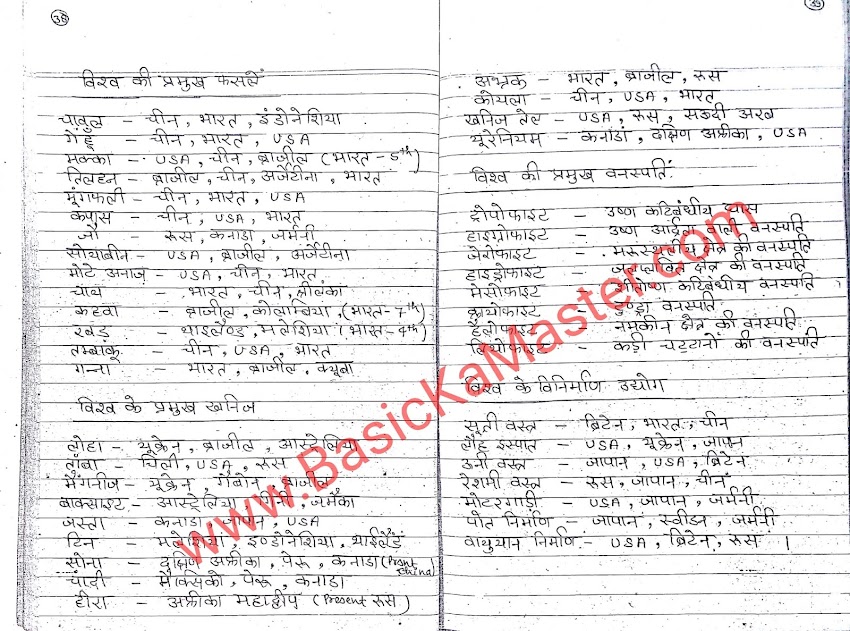 38
विश्व की प्रमुख फसलें
चावुल – चीन, भारत, इंडोनेशिया
गेहूं – चीन, भारत, USA
मक्का – USA, चीन, ब्राजील (भारत - 5th)
तिलहन – ब्राजील, चीन, अर्जेंटीना, भारत
मूंगफली – चीन, भारत, USA
कपास – चीन, USA, भारत
जौ – रूस, कनाडा, जर्मनी
सोयाबीन – USA, ब्राजील, अर्जेटीना
मोटे अनाज – USA, चीन, भारत
चाय – भारत, चीन, श्रीलंका
कहवा – ब्राजील, कोलाम्बिया, (भारत - 7th)
रबड़ – थाईलैण्ड, मलेशिया (भारत - 4th)
तम्बाकू – चीन, USA, भारत
गन्ना – भारत, ब्राजील, क्यूबा
विश्व के प्रमुख खनिज
लोहा – यूक्रेन, ब्राजील, आस्ट्रेलिया
तांबा – चिली, USA, रूस
मैंगनीज – यूक्रेन, गैबोन, ब्राजील
बाक्साइट – आस्ट्रेलिया, गिनी, जमैका
जस्ता – कनाडा, जापान, USA
टिन – मलेशिया, इण्डोनेशिया, थाईलैंड
सोना – दक्षिण अफ्रीका, पेरू, कनाडा (Prsnt china)
चांदी – मैक्सिको, पेरू, कनाडा
हीरा – अफ्रीका महाद्वीप (Present रूस)
39
अभ्रक – भारत, ब्राजील, रूस
कोयला – चीन, USA, भारत
खनिज तेल – USA, रूस, सऊदी अरब
यूरेनियम – कनाडा, दक्षिण अफ्रीका, USA
विश्व की प्रमुख वनस्पति:
ट्रोपोफाइट – उष्ण कटिबंधीय घास
हाइग्रोफाइट – उष्ण आर्द्रता वाली वनस्पति
जेरोफाइट – मरूस्थलीय क्षेत्र की वनस्पति
हाइड्रोफाइट – जलप्लावित क्षेत्र की वनस्पति
मेसोफाइट – शीतोष्ण कटिबंधीय वनस्पति
क्रायोफाइट – टुण्ड्रा वनस्पति
हैलोफाइट – नमकीन क्षेत्र की वनस्पति
लिथोफाइट – कड़ी चट्टानों की वनस्पति
विश्व के विनिर्माण उद्योग
सूती वस्त्र – ब्रिटेन, भारत, चीन
लौह इस्पात – USA, यूक्रेन, जापान
ऊनी वस्त्र – जापान, USA, ब्रिटेन
रेशमी वस्त्र – रूस, जापान, चीन
मोटरगाड़ी – USA, जापान, जर्मनी
पोत निर्माण – जापान, स्वीडन, जर्मनी
वायुयान निर्माण – USA, ब्रिटेन, रूस ।
www.BasicKaMaster.com